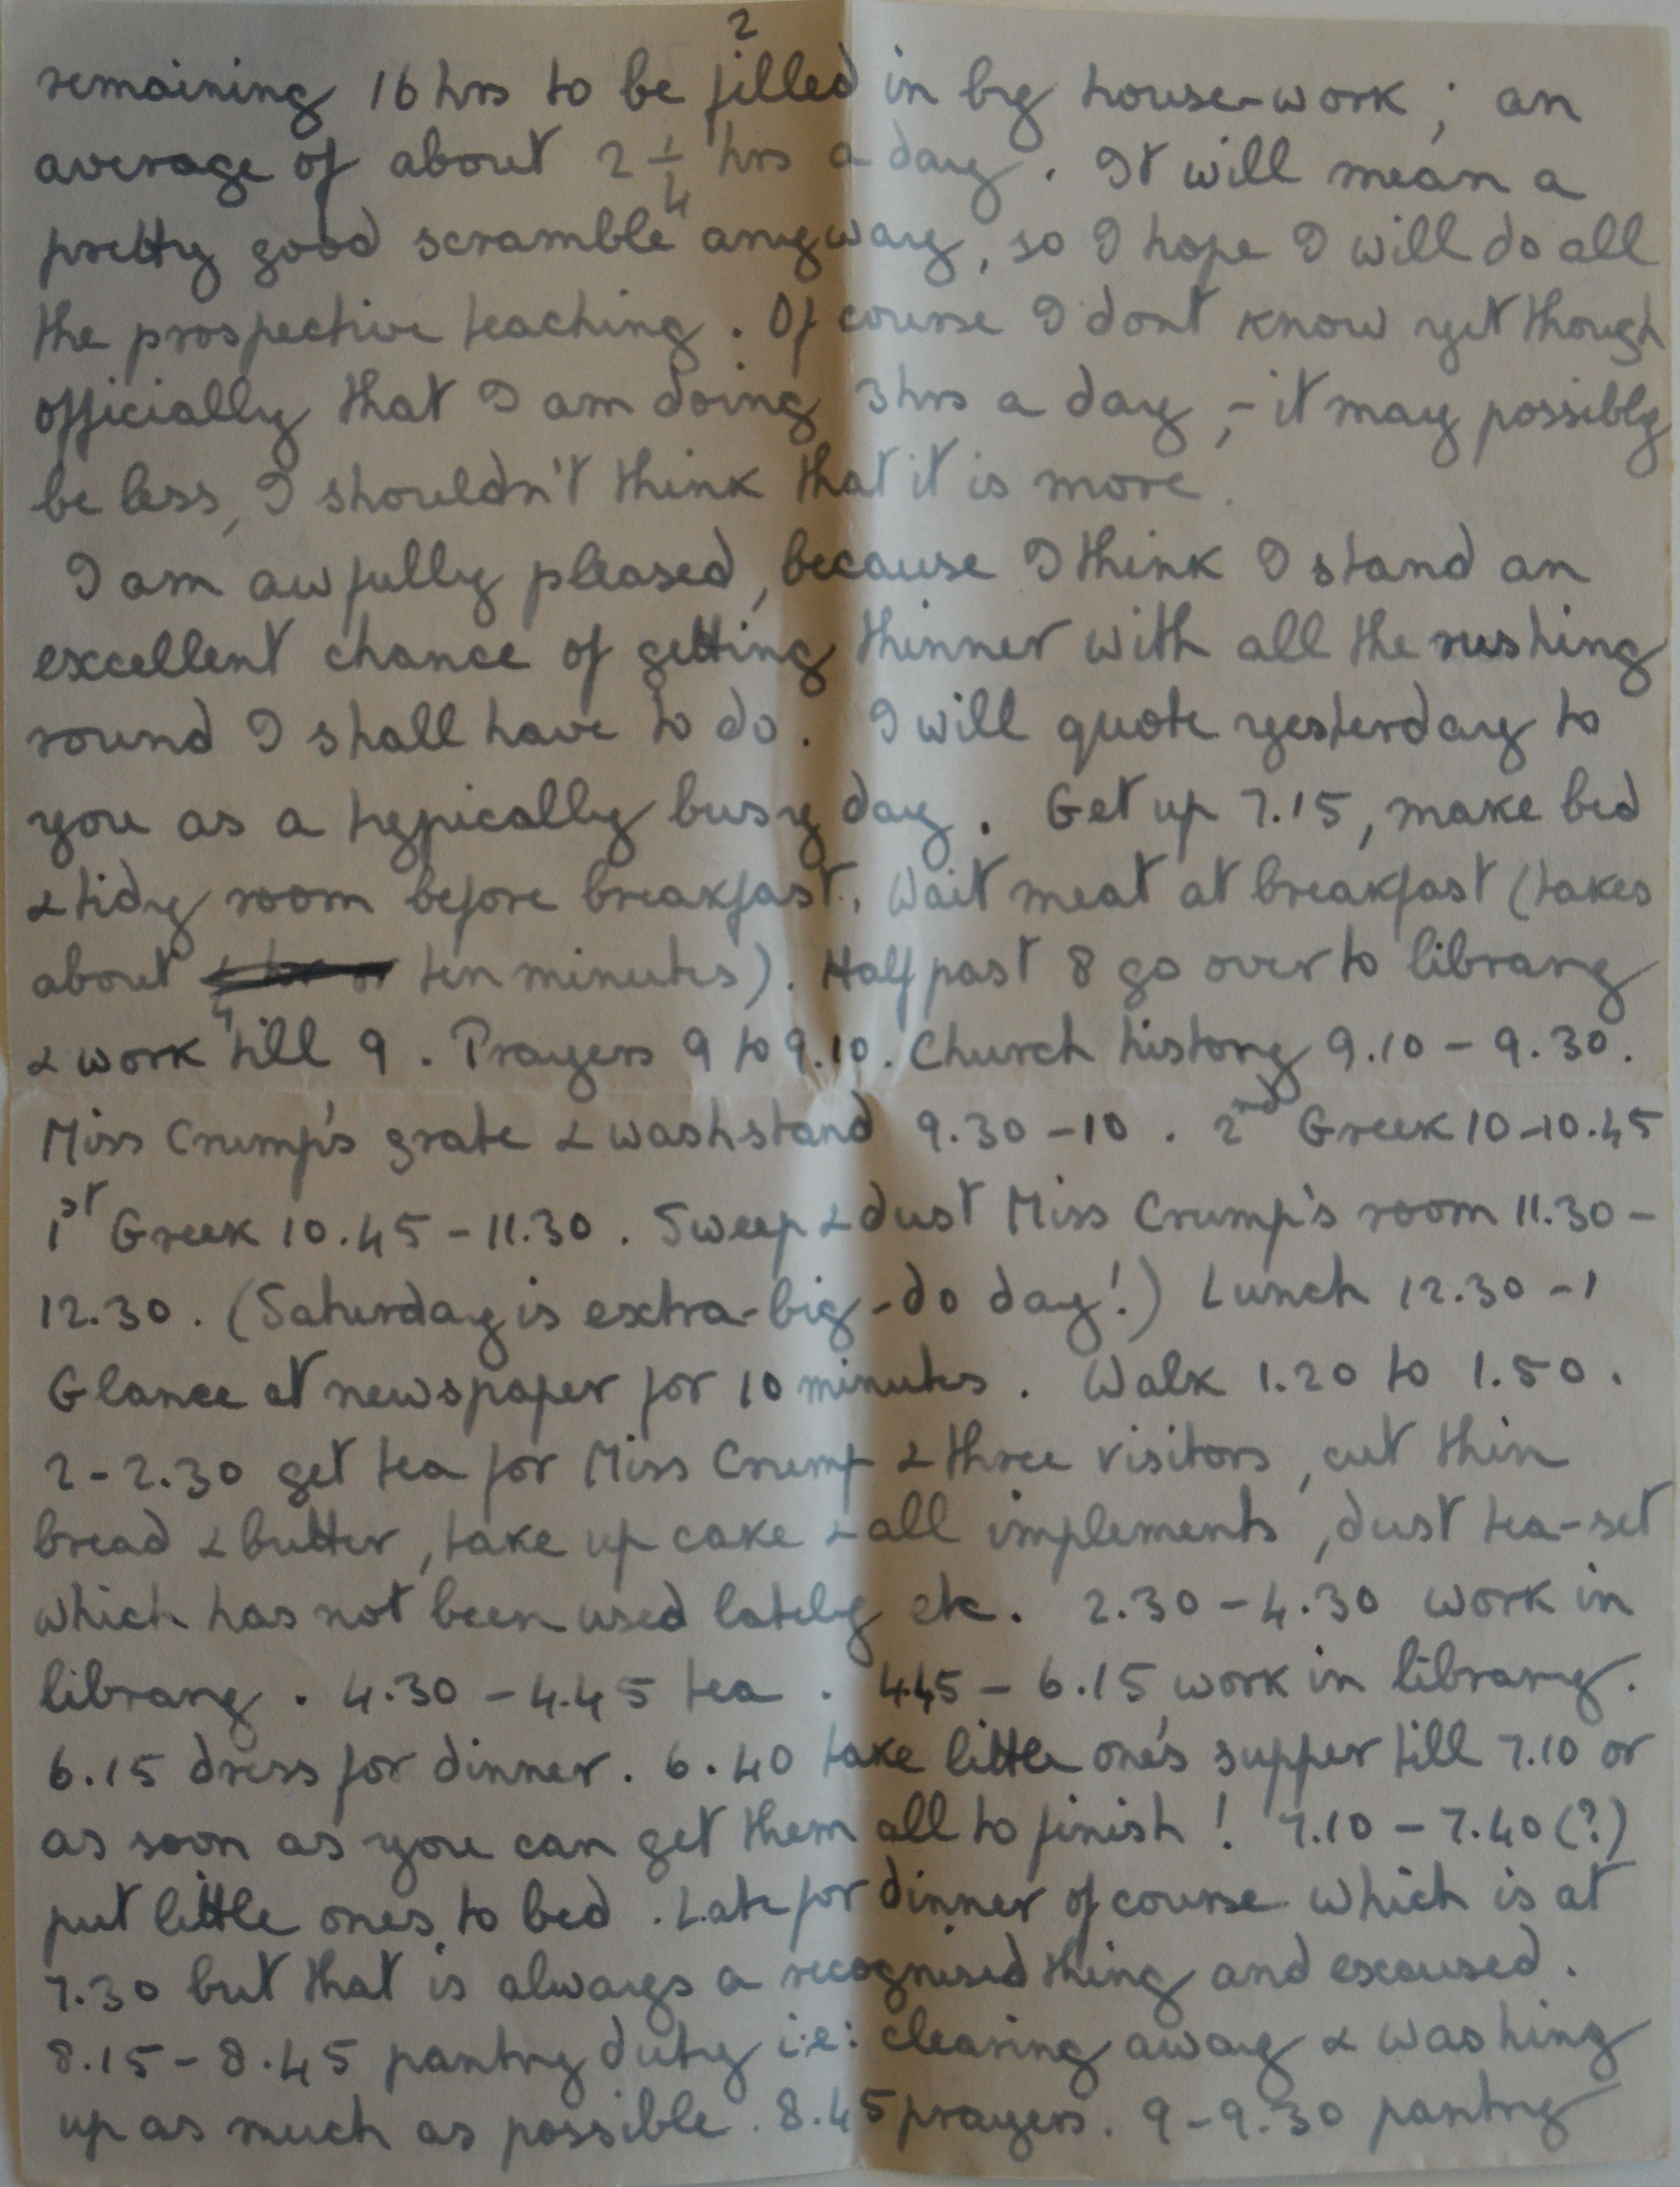 2
remaining 16 hrs to be filled in by house-work; an
average of about 2 1/4 hrs a day. It will mean a
pretty good scramble anyway, so I hope I will do all
the prospective teaching. Of course I dont know yet though
officially that I am doing 3 hrs a day, - it may possibly
be less, I shouldn't think that it is more.
I am awfully pleased, because I think I stand an
excellent chance of getting thinner with all the rushing
round I shall have to do. I will quote yesterday to
you as a typically busy day. Get up 7.15, make bed
& tidy room before breakfast. Wait meat at breakfast (takes
about ten minutes). Half past 8 go over to library
& work till 9. Prayers 9 to 9.10. Church history 9.10 - 9.30.
Miss Crump's grate & washstand 9.30 - 10. 2nd Greek 10-10.45
1st Greek 10.45 - 11.30. Sweep & dust Miss Crump's room 11.30 -
12.30. (Saturday is extra-big-do day!) Lunch 12.30 - 1
Glance at newspaper for 10 minutes. Walk 1.20 to 1.50.
2 - 2.30 get tea for Miss Crump & three visitors, cut thin
bread & butter, take up cake & all implements, dust tea-set
which has not been used lately etc. 2.30 - 4.30 work in
library. 4.30 - 4.45 tea. 4.45 - 6.15 work in library.
6.15 dress for dinner. 6.40 take little one's supper till 7.10 or
as soon as you can get them all to finish! 7.10 - 7.40 (?)
put little ones to bed. Late for dinner of course which is at
7.30 but that is always a recognised thing and excused.
8.15 - 8.45 pantry duty i.e: clearing away & washing
up as much as possible. 8.45 prayers. 9 - 9.30 pantry